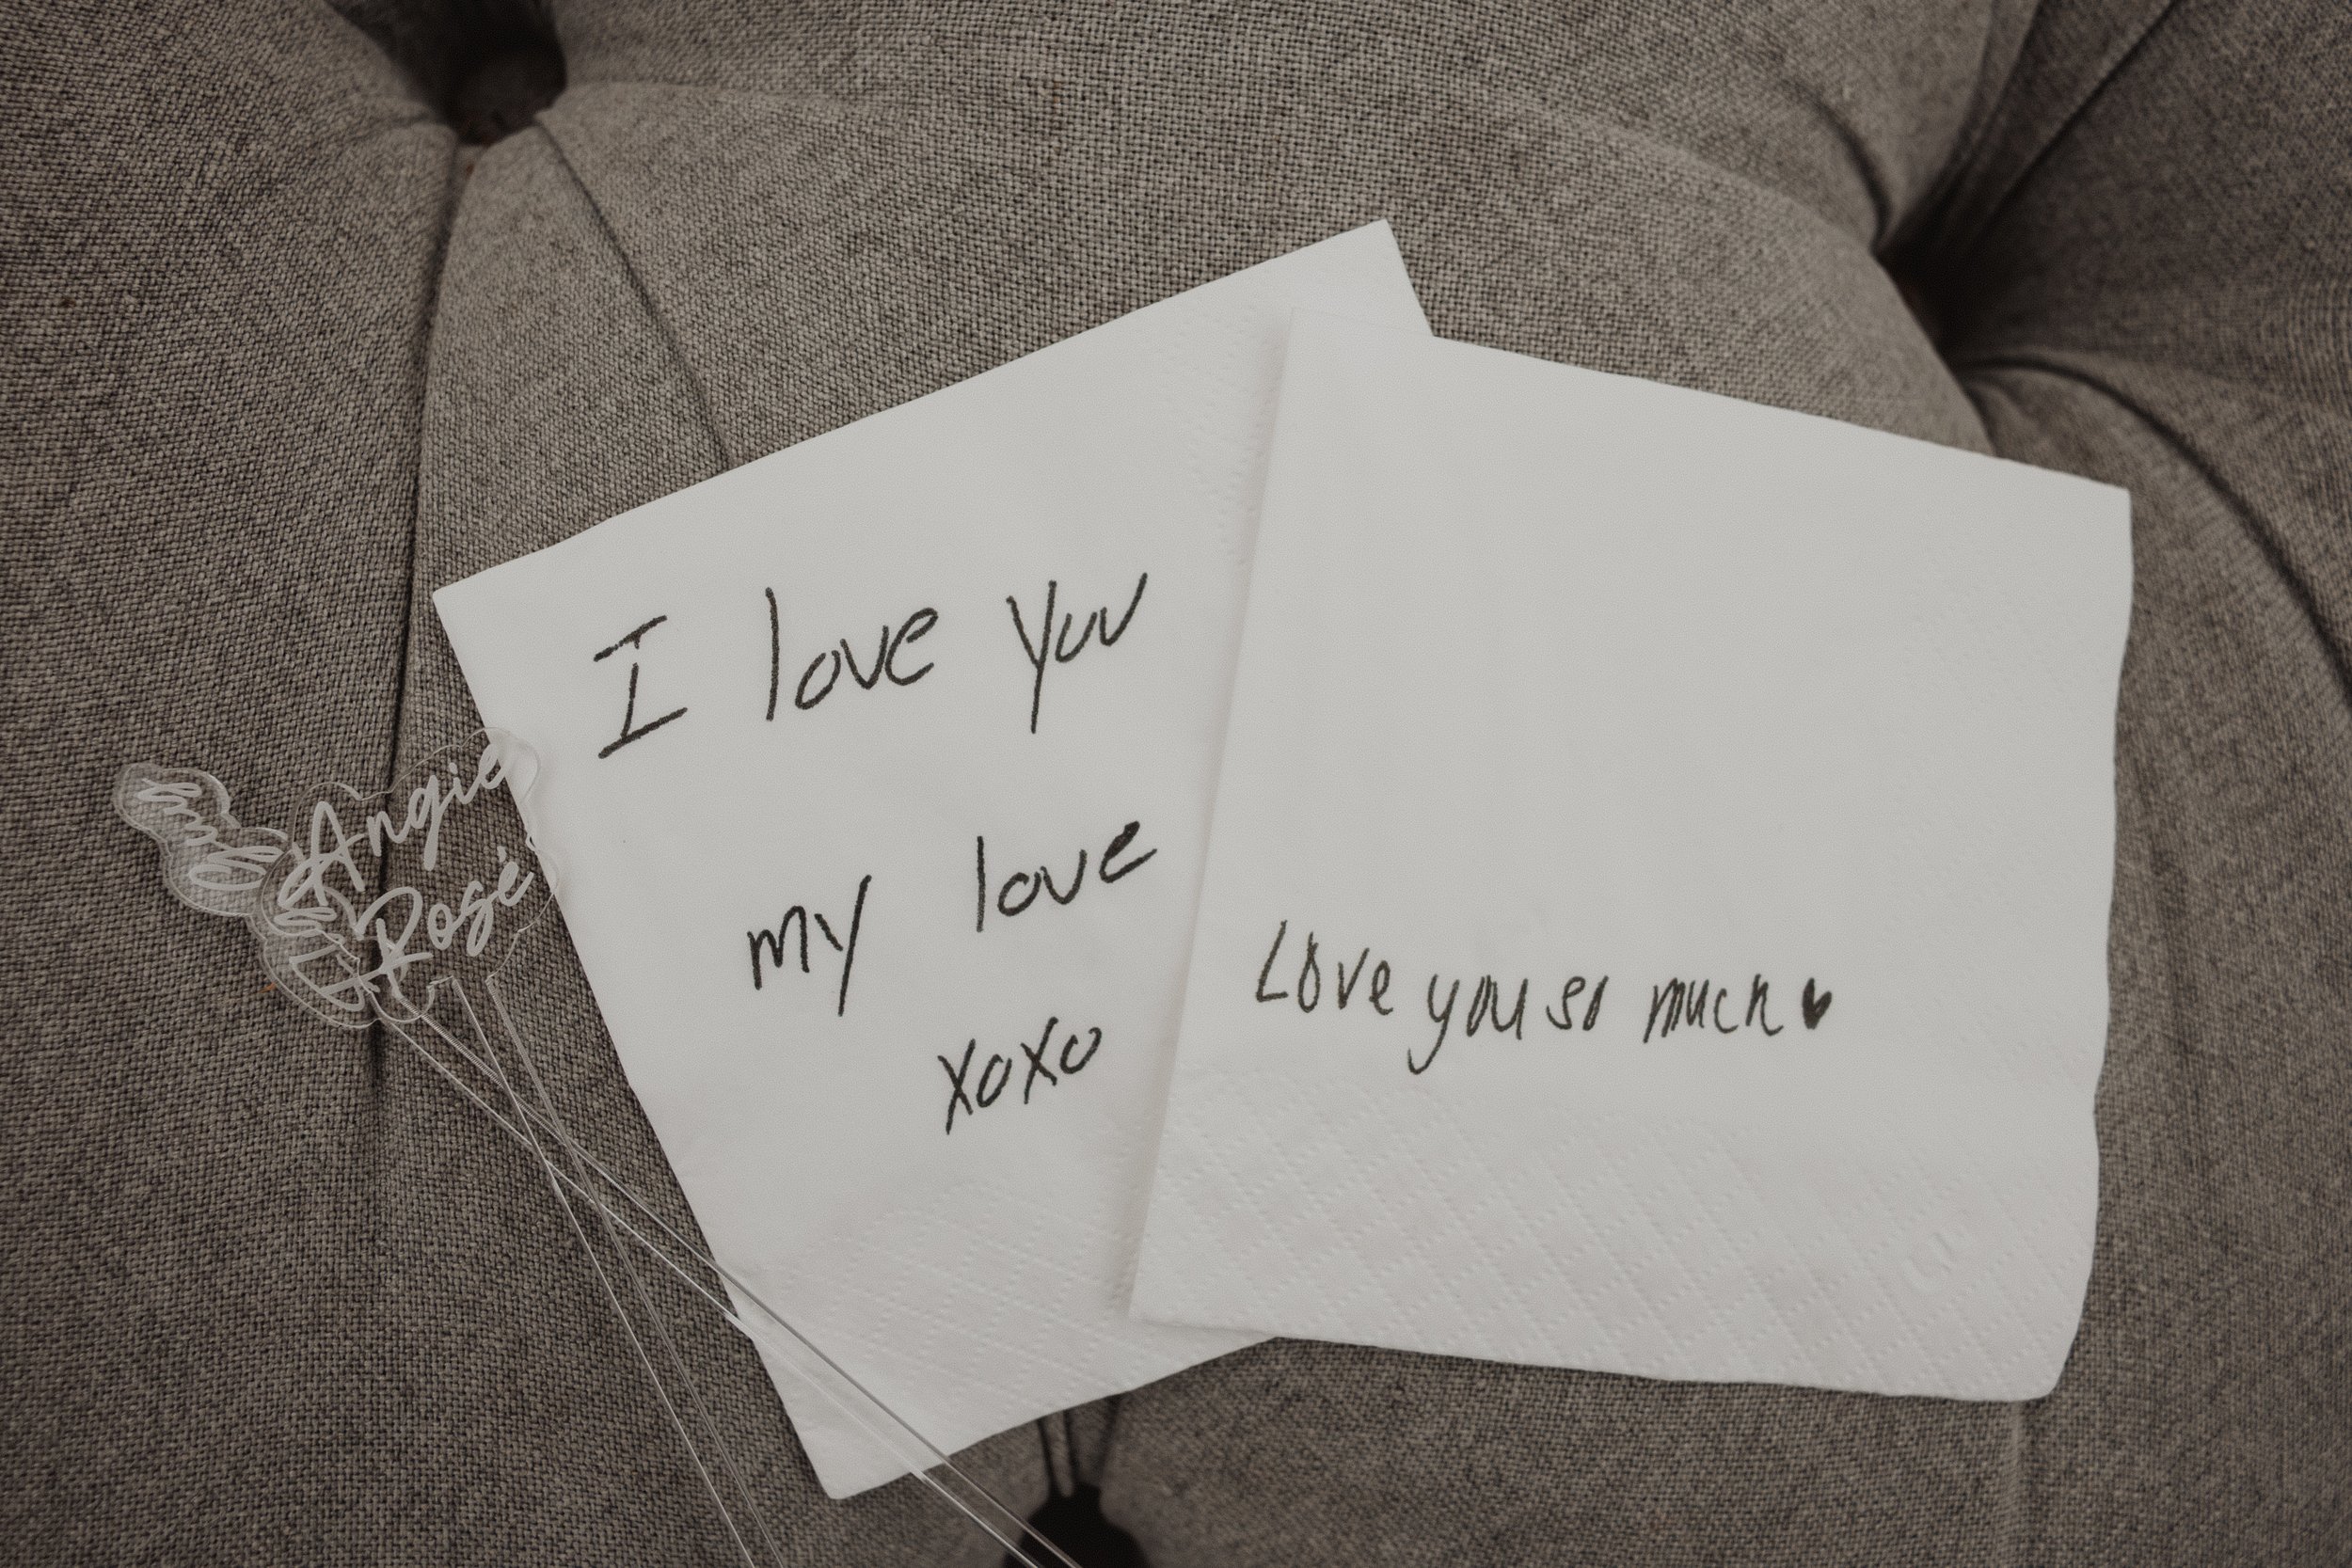 I love you
my love
xoxo
Love you so much ♥
Angie
Rosé